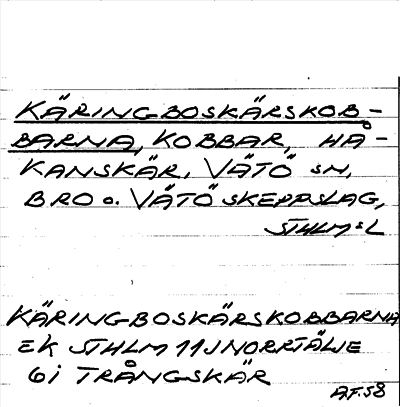 KÄRINGBOSKÄRSKOB-
BARNA, KOBBAR, HÅ-
KANSKÄR, VÄTÖ SN,
BRO O. VÄTÖ SKEPPSLAG,
STHLM:S L
KÄRINGBOSKÄRSKOBBARNA
EK STHLM 11 J NORRTÄLJE
6 i TRÅNGSKÄR
A.F. 58